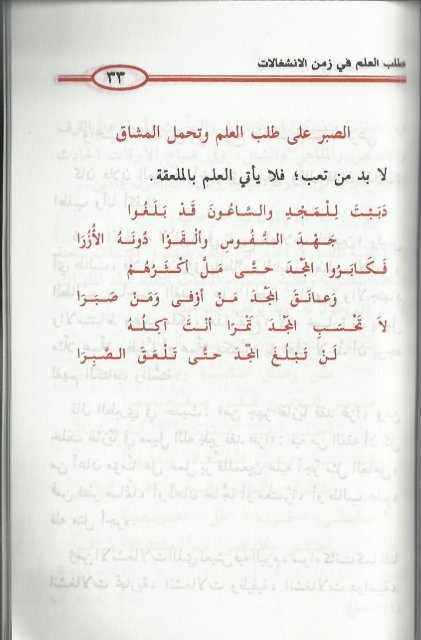 طلب العلم في زمن الانشغالات
٣٣
الصبر على طلب العلم وتحمل المشاق
لا بد من تعب؛ فلا يأتي العلم بالملعقة.
دَبَبْتَ لِلْمَجْدِ والسَّاعُونَ قَدْ بَلَغُوا
جَهْدَ النُّفُوسِ وأَلْقَوْا دُونَهُ الأُزُرَا
فَكَابَرُوا المَجْدَ حَتَّى مَلَّ أَكْثَرُهُمْ
وَعَانَقَ المَجْدَ مَنْ أَوْفَى وَمَنْ صَبَرَا
لاَ تَحْسَبِ المَجْدَ تَمْرًا أَنْتَ آكِلُهُ
لَنْ تَبْلُغَ المَجْدَ حتَّى تَلْعَقَ الصَّبِرَا